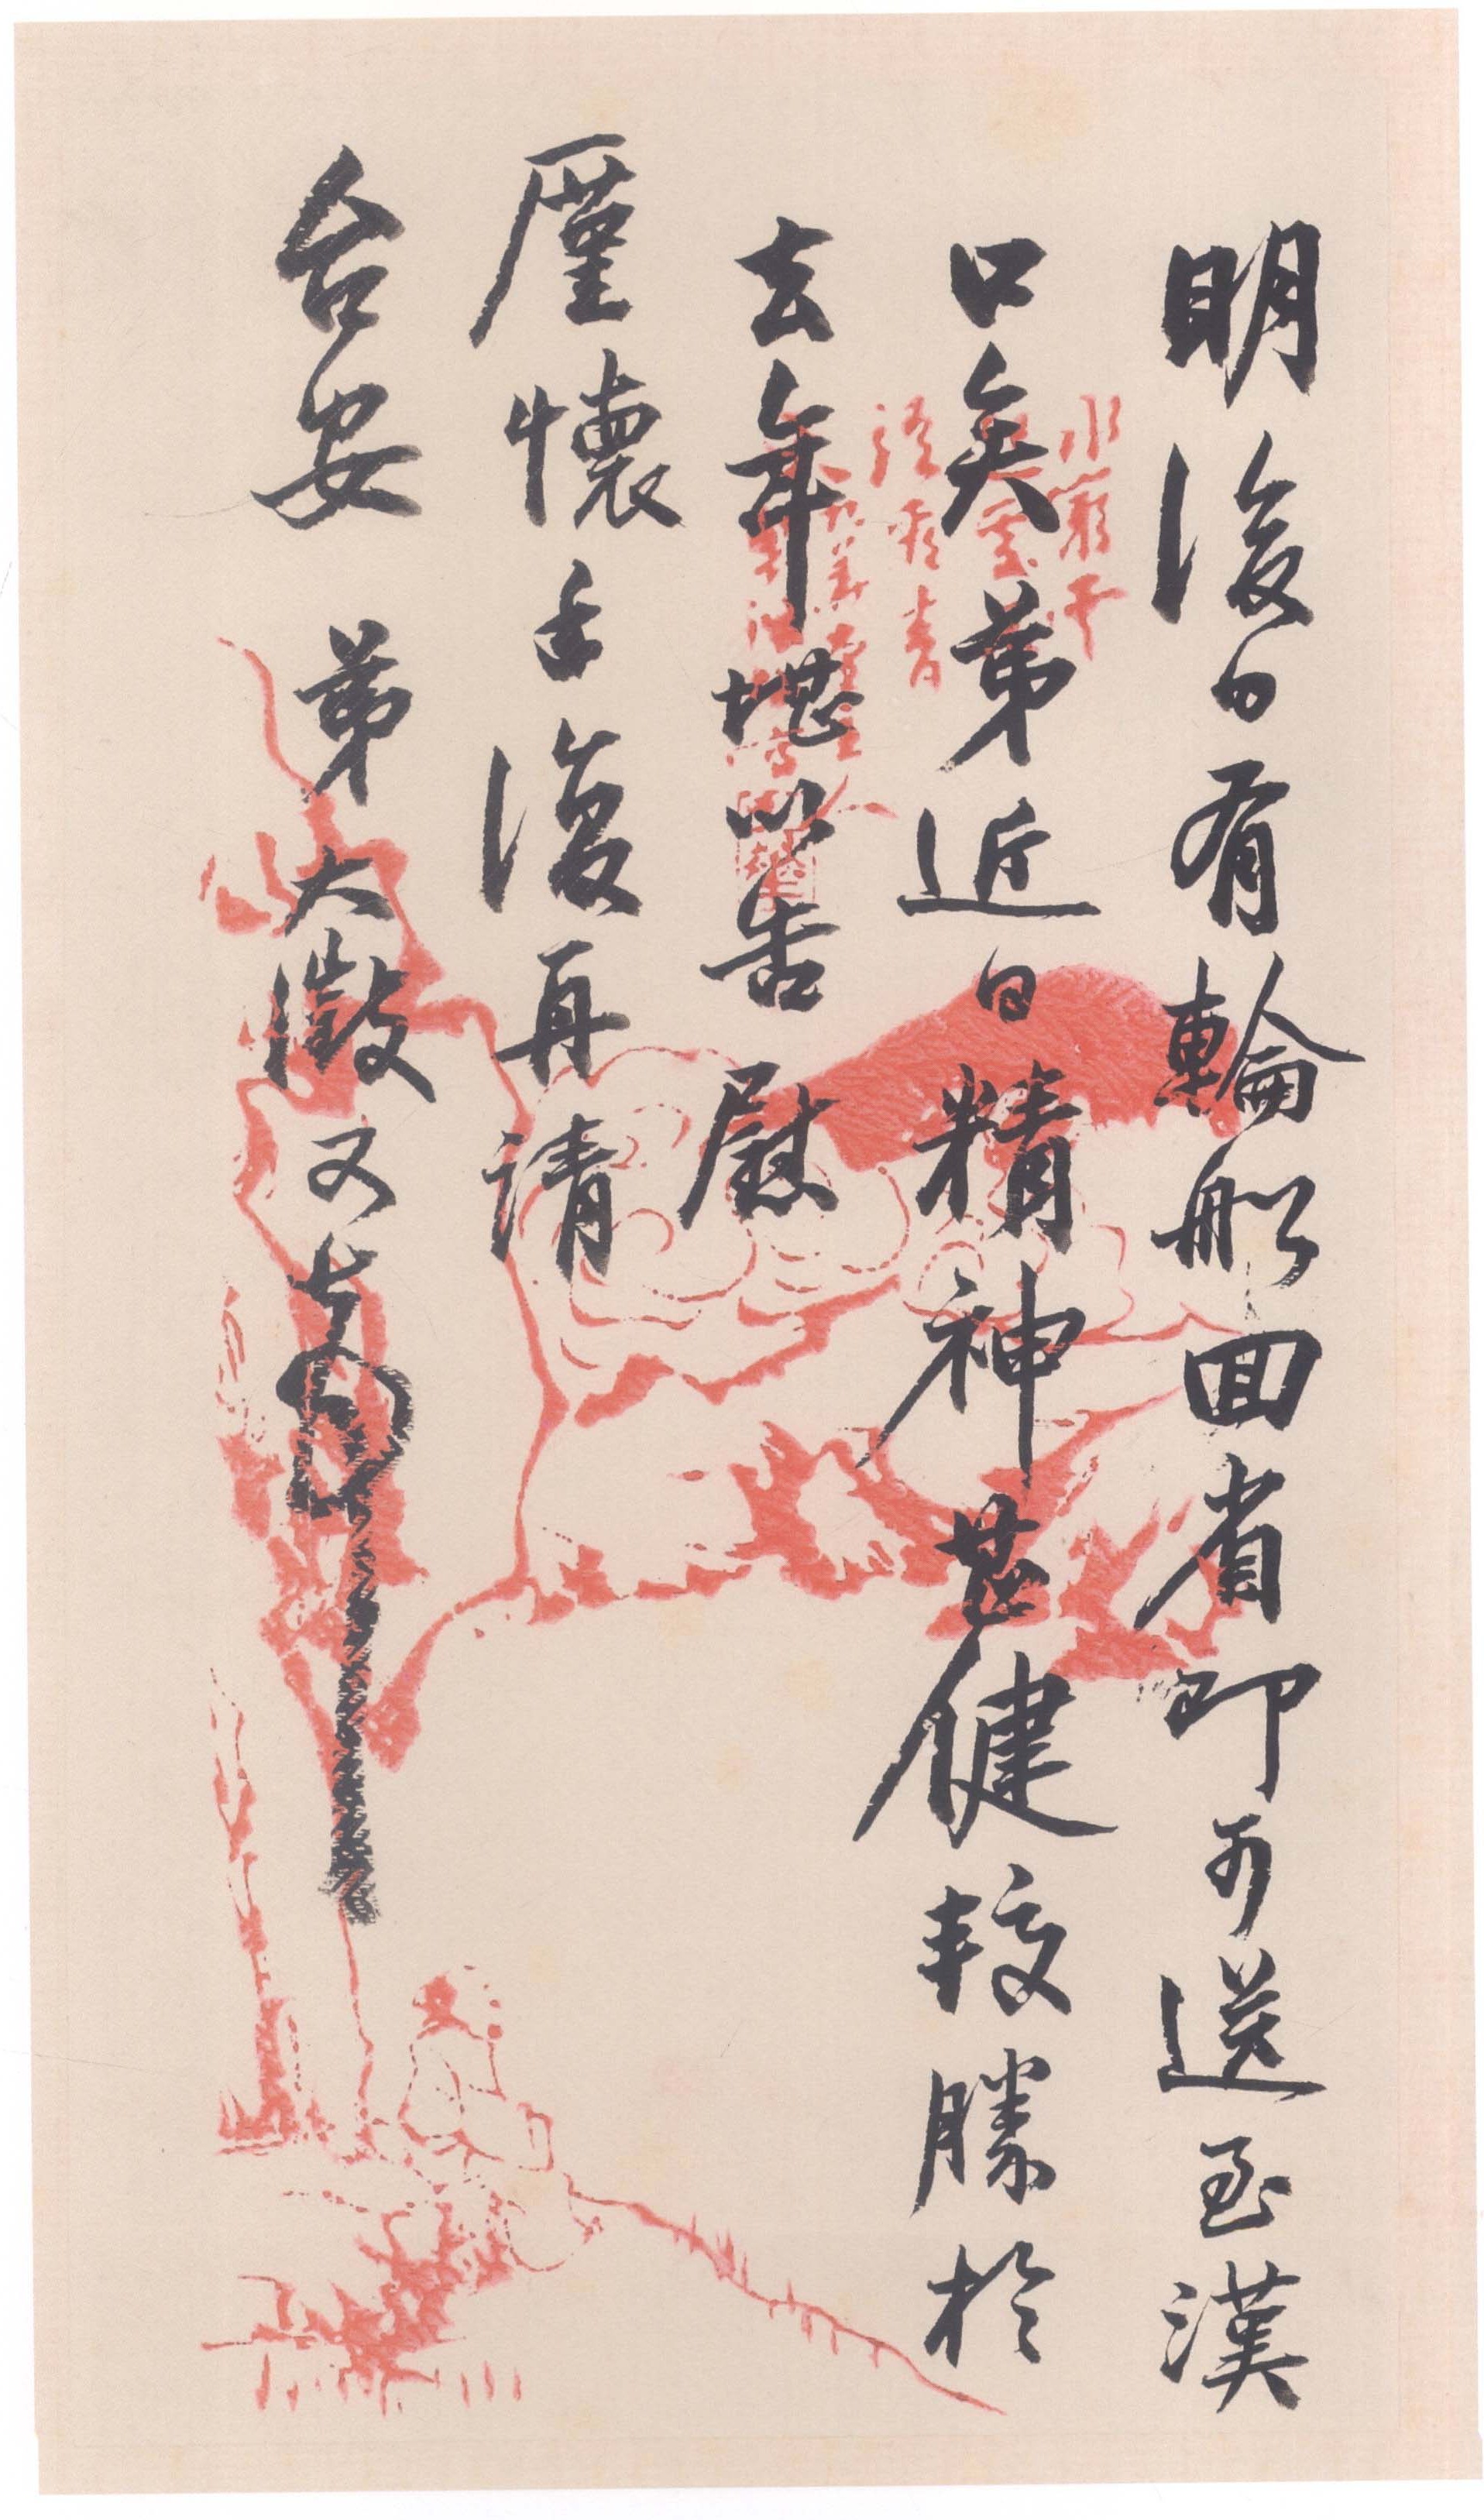 明後日有輪船回省即可送至漢
口矣弟近日精神甚健較勝於
去年堪以告慰
廑懷手復再請
台安 弟大澂又頓
水窮